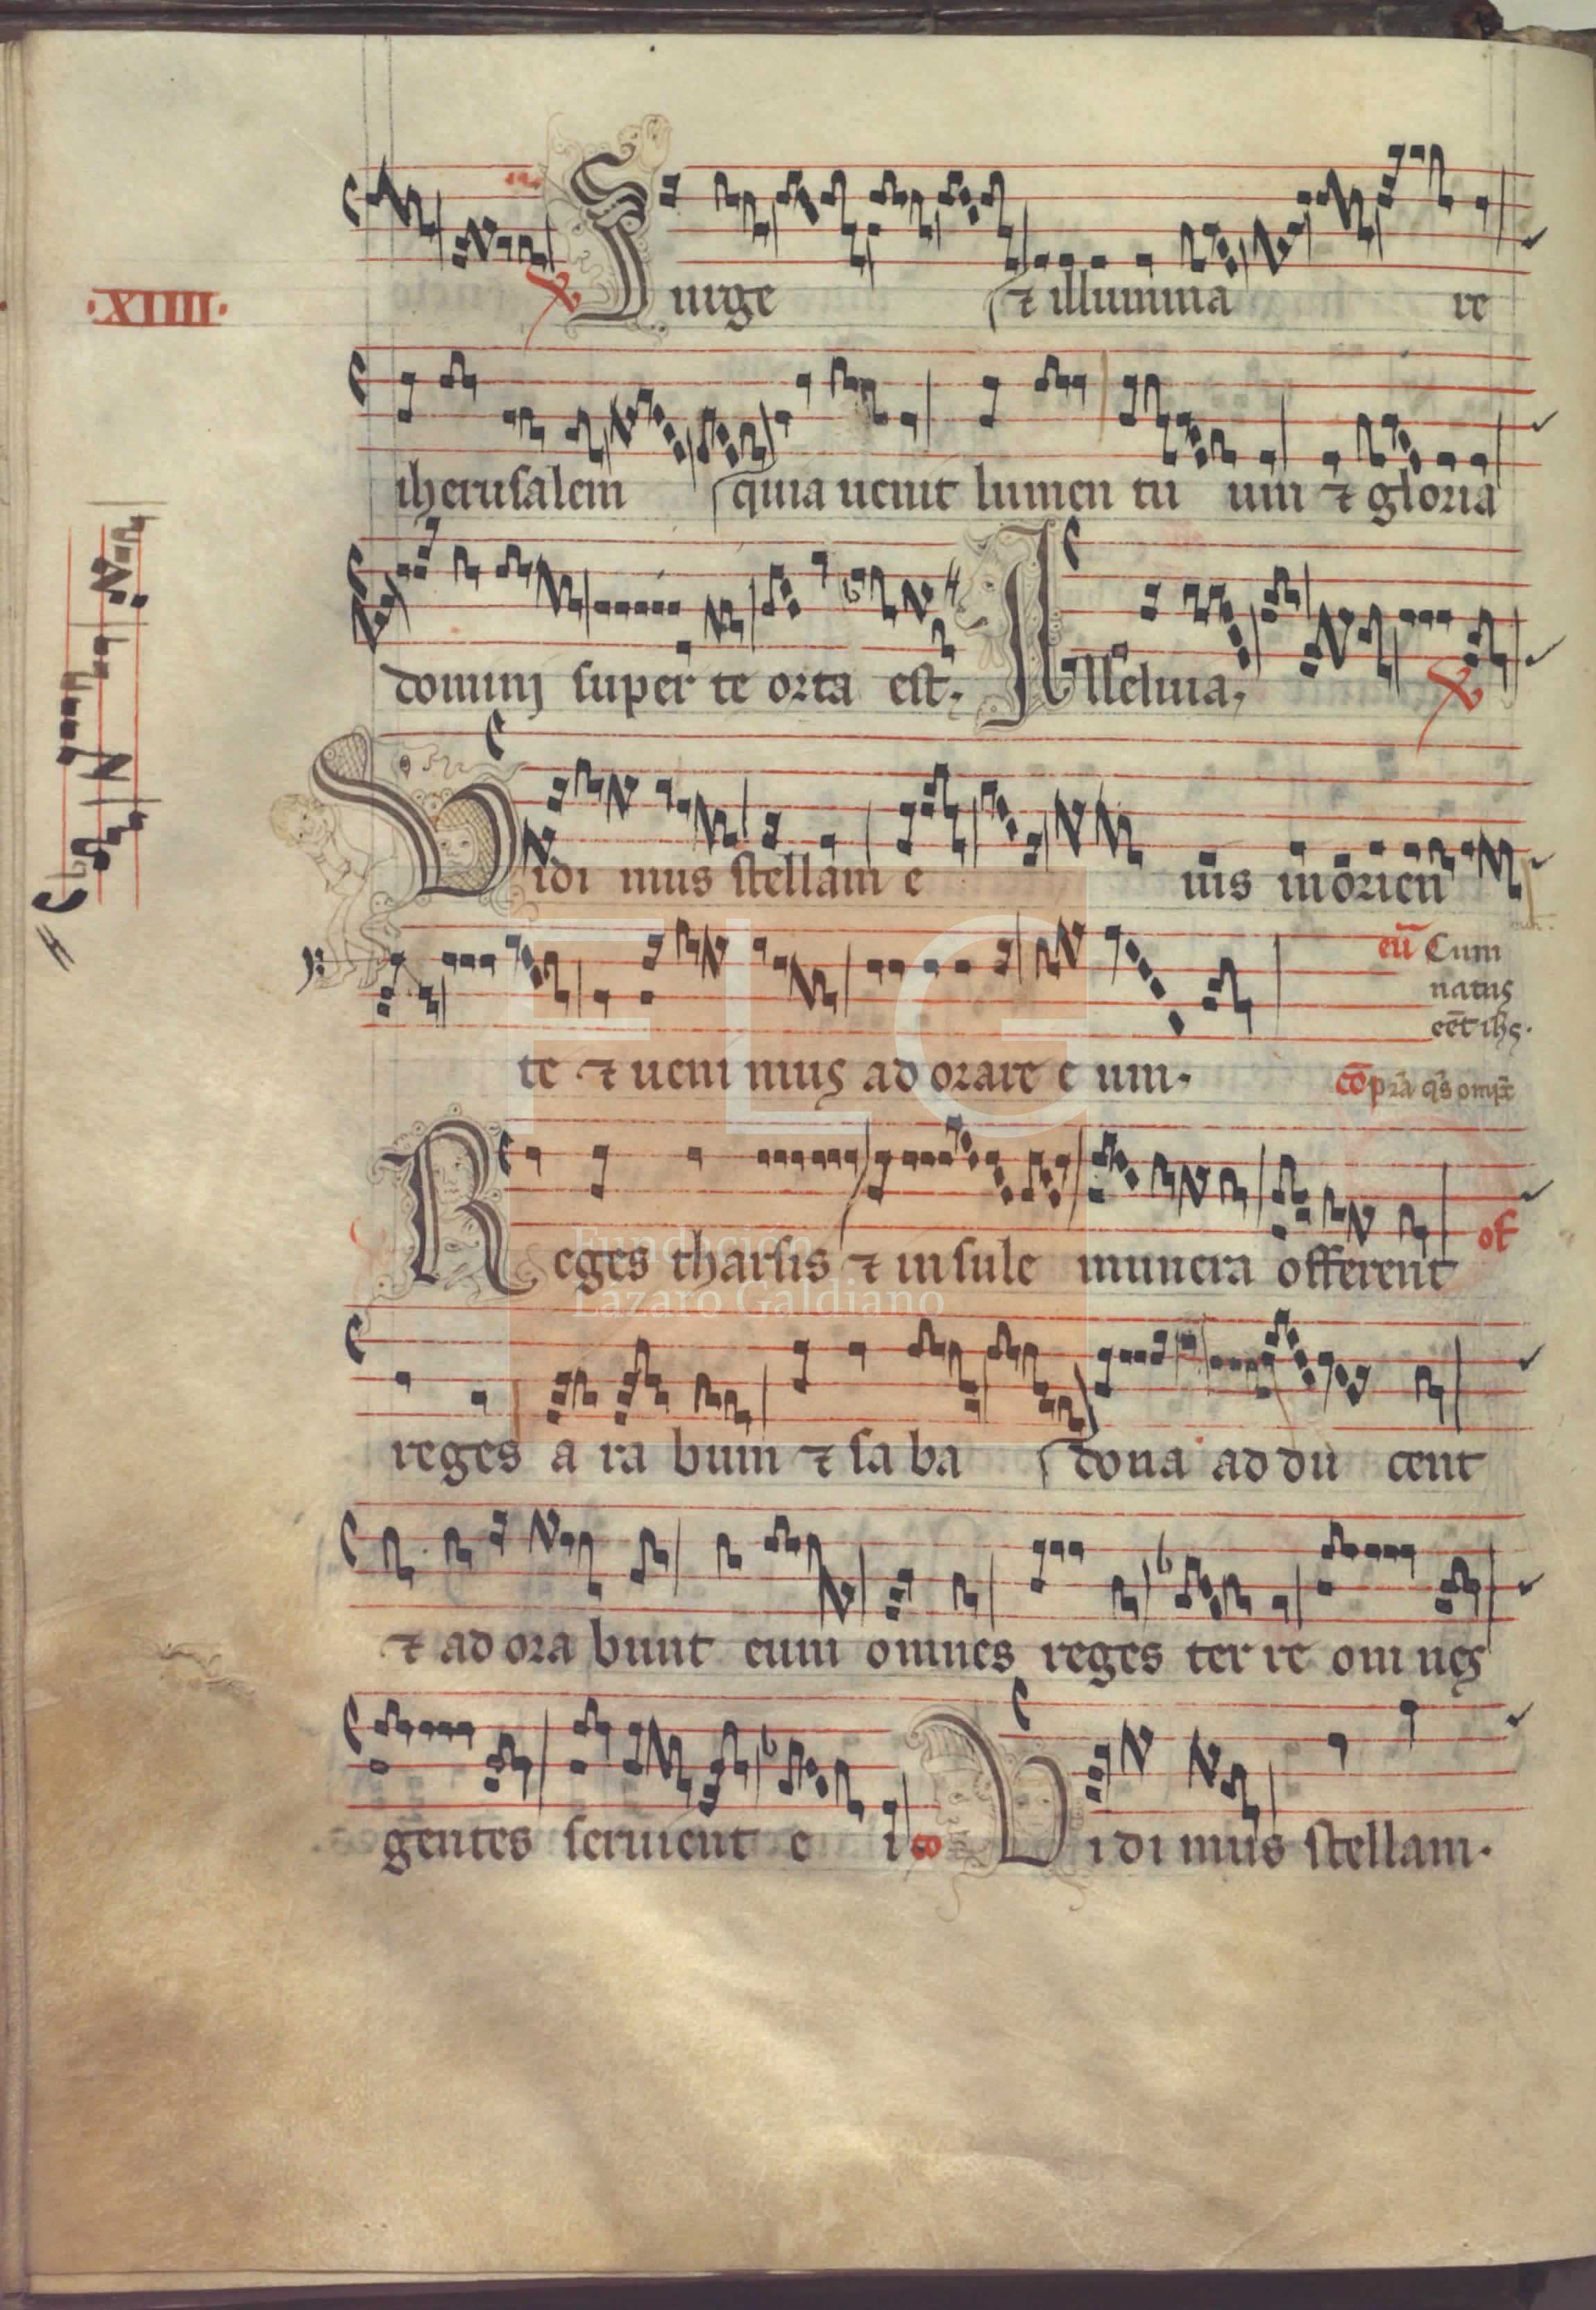 ·XIIII·
Surge ⁊ illumina re
iherusalem quia uenit lumen tu um ⁊ gloria
domini super te orta est. Alleluia.
Vidi mus stellam e ius in orien
te ⁊ ueni mus ad orare e um.
eū Cum
natus
eēt ihs.
Reges tharsis ⁊ insule munera offerent of
reges a ra bum ⁊ sa ba dona ad du cent
⁊ ad ora bunt eum omnes reges ter re om nes
gentes seruient e i co Vi di mus stellam.
FLG
Fundación
Lázaro Galdiano